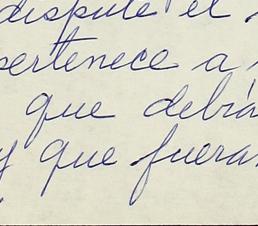 dispute el
pertenece a
que debía
y que fuera